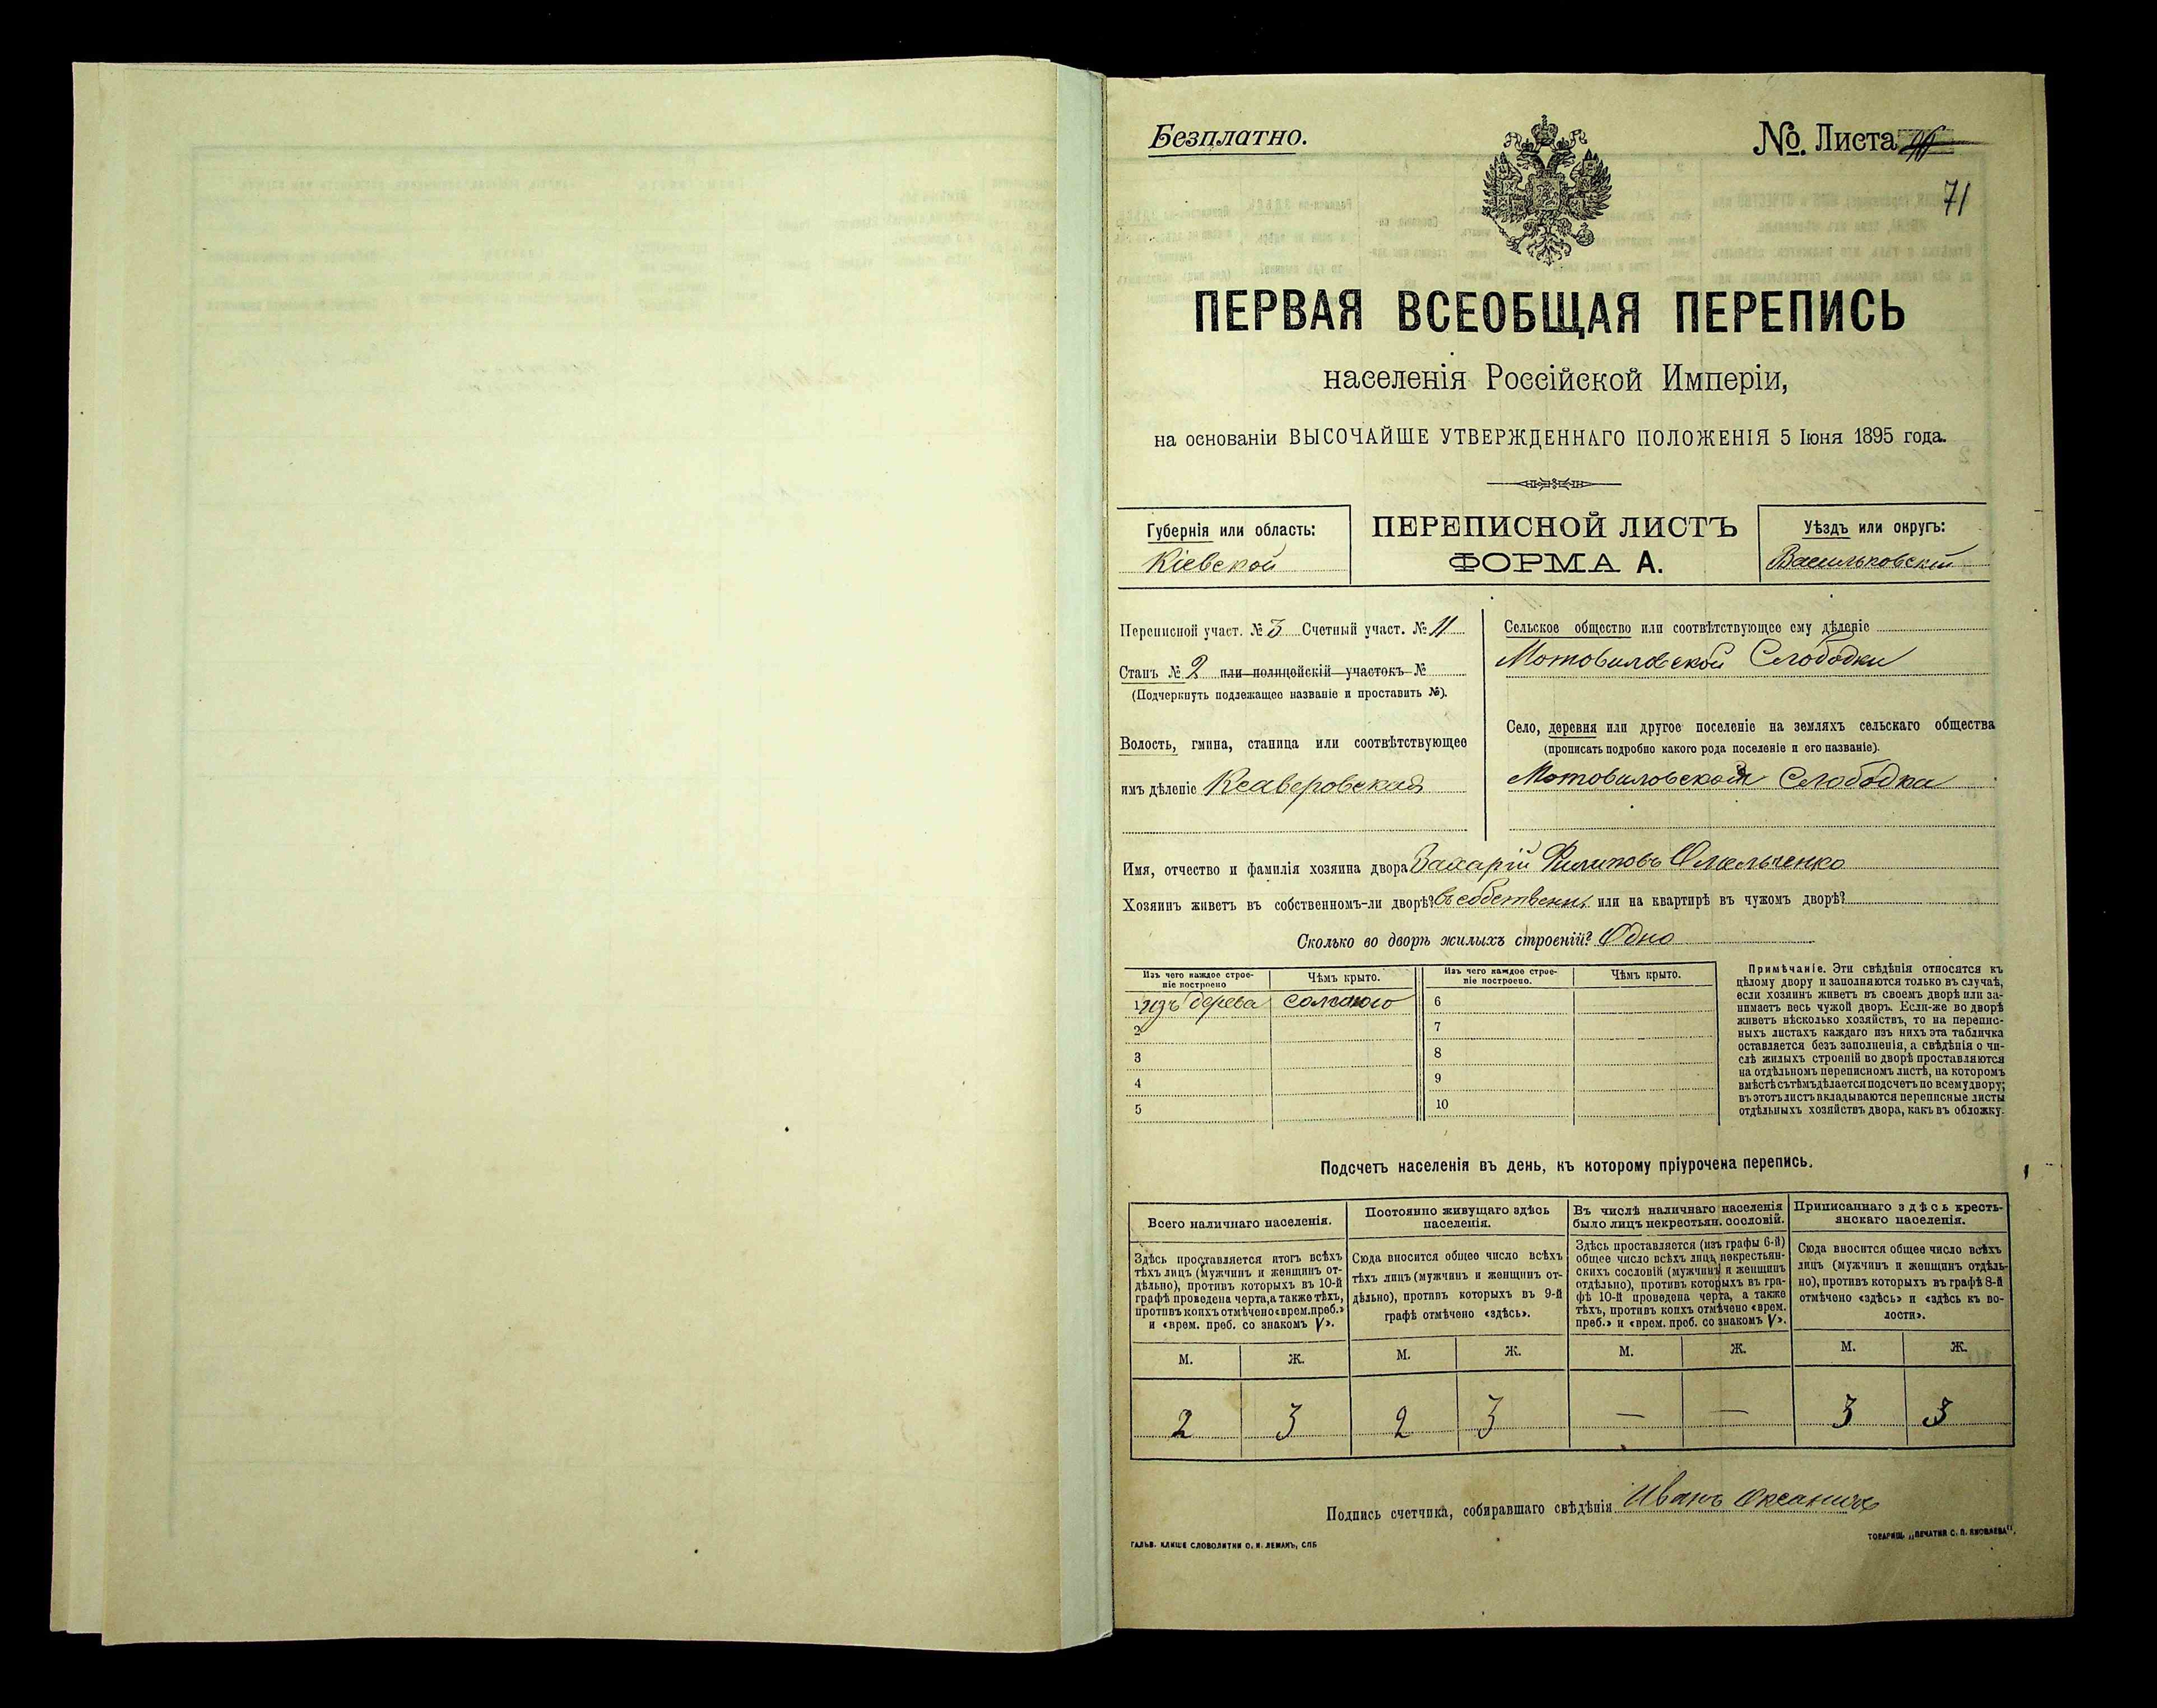 Безплатно.
№. Листа
71
ПЕРВАЯ ВСЕОБЩАЯ ПЕРЕПИСЬ
населенія Россійской Имперіи,
на основаніи ВЫСОЧАЙШЕ УТВЕРЖДЕННАГО ПОЛОЖЕНІЯ 5 Іюня 1895 года.
Губернія или область:
Кіевской
ПЕРЕПИСНОЙ ЛИСТЪ
ФОРМА А.
Уѣздъ или округъ:
Васильковскій
Переписной участ. № 3 Счетный участ. № 11
Станъ № 2 или полицейскій участокъ №
(Подчеркнуть подлежащее названіе и проставить №).
Волость, гмина, станица или соотвѣтствующее
имъ дѣленіе Ксаверовская
Сельское общество или соотвѣтствующее ему дѣленіе
Мотовиловской Слободки
Село, деревня или другое поселеніе на земляхъ сельскаго общества
(прописать подробно какого рода поселеніе и его названіе).
Мотовиловская Слободка
Имя, отчество и фамилія хозяина двора Захарій Филиповъ Омельченко
Хозяинъ живетъ въ собственномъ-ли дворѣ? въ собственн. или на квартирѣ въ чужомъ дворѣ?
Сколько во дворѣ жилыхъ строеній? Одно
Изъ чего каждое строе-
ніе построено
Чѣмъ крыто.
Изъ чего каждое строе-
ніе построено.
Чѣмъ крыто.
1 изъ дерева соломою
2
3
4
5
6
7
8
9
10
Примѣчаніе. Эти свѣдѣнія относятся къ
цѣлому двору и заполняются только въ случаѣ,
если хозяинъ живетъ въ своемъ дворѣ или за-
нимаетъ весь чужой дворъ. Если-же во дворѣ
живетъ нѣсколько хозяйствъ, то на перепис-
ныхъ листахъ каждаго изъ нихъ эта табличка
оставляется безъ заполненія, а свѣдѣнія о чи-
слѣ жилыхъ строеній во дворѣ проставляются
на отдѣльномъ переписномъ листѣ, на которомъ
вмѣстѣ съ тѣмъ дѣлается подсчетъ по всему двору;
въ этотъ листъ вкладываются переписные листы
отдѣльныхъ хозяйствъ двора, какъ въ обложку.
Подсчетъ населенія въ день, къ которому пріурочена перепись.
Всего наличнаго населенія.
Здѣсь проставляется итогъ всѣхъ
тѣхъ лицъ (мужчинъ и женщинъ от-
дѣльно), противъ которыхъ въ 10-й
графѣ проведена черта, а также тѣхъ,
противъ коихъ отмѣчено «врем. преб.»
и «врем. преб. со знакомъ V».
Постоянно живущаго здѣсь
населенія.
Сюда вносится общее число всѣхъ
тѣхъ лицъ (мужчинъ и женщинъ от-
дѣльно), противъ которыхъ въ 9-й
графѣ отмѣчено «здѣсь».
Въ числѣ наличнаго населенія
было лицъ некрестьян. сословій.
Здѣсь проставляется (изъ графы 6-й)
общее число всѣхъ лицъ некрестьян-
скихъ сословій (мужчинъ и женщинъ
отдѣльно), противъ которыхъ въ гра-
фѣ 10-й проведена черта, а также
тѣхъ, противъ коихъ отмѣчено «врем.
преб.» и «врем. преб. со знакомъ V».
Приписаннаго здѣсь кресть-
янскаго населенія.
Сюда вносится общее число всѣхъ
лицъ (мужчинъ и женщинъ отдѣль-
но), противъ которыхъ въ графѣ 8-й
отмѣчено «здѣсь» и «здѣсь къ во-
лости».
М. Ж. М. Ж. М. Ж. М. Ж.
2 3 2 3 — — 3 3
Подпись счетчика, собиравшаго свѣдѣнія Иванъ
ГАЛЬВ. КЛИШЕ СЛОВОЛИТНИ О. И. ЛЕМАНЪ, СПБ
ТОВАРИЩ. „ПЕЧАТНЯ С. П. ЯКОВЛЕВА".